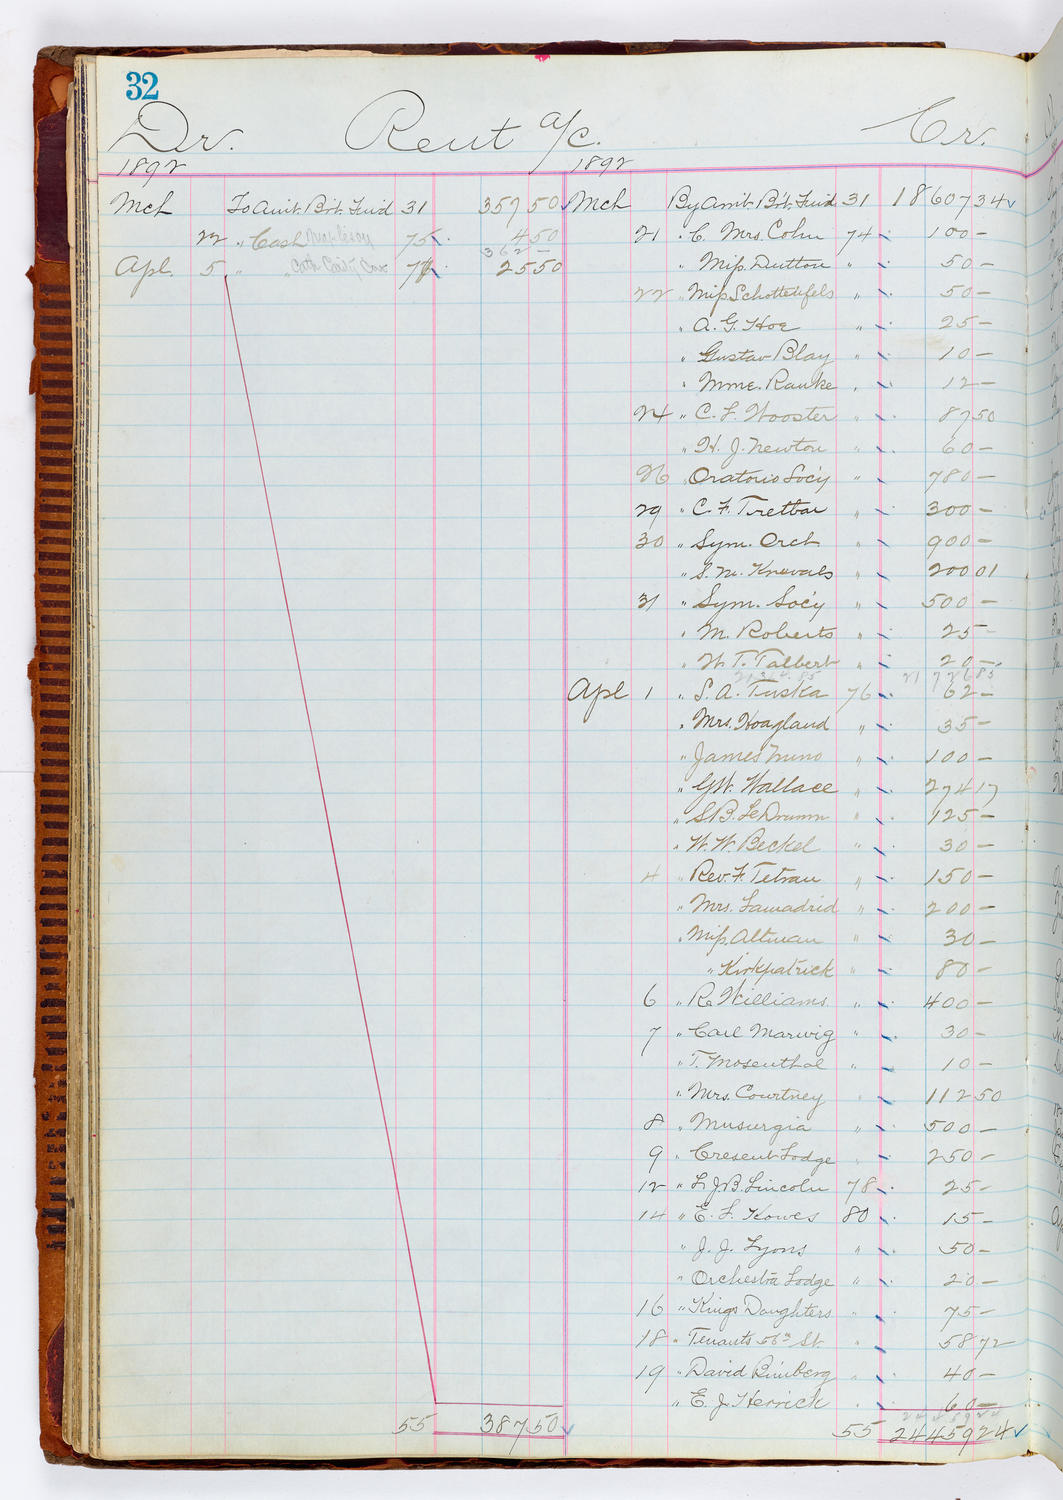 32
Dr. Rent a/c. Cr.
1892 1892
Mch To Amt. Bot. Fwd 31 357 50
22 " Cash Mapleson 75 4 50
362 —
Apl. 5 " " 77 25 50
55 387 50
Mch By Amt. Bot. Fwd 31 18607 34
21 " C. Mrs. Cohn 74 100 —
" Miss Dutton " 50 —
22 " Miss Schottenfels " 50 —
" A. G. Hoe " 25 —
" Gustav Blay " 10 —
" Mme. Ranke " 12 —
24 " C. F. Wooster " 87 50
" H. J. Newton " 60 —
26 " Oratorio Soc'y " 780 —
29 " C. F. Tretbar " 300 —
30 " Sym. Orch " 900 —
" S. M. Knevals " 200 01
31 " Sym. Soc'y " 500 —
" M. Roberts " 25 —
" W. T. Talbert " 20 —
21 726 85
Apl 1 " S. A. Tuska 76 62 —
" Mrs. Hoagland " 35 —
" James Nuno " 100 —
" G. W. Wallace " 274 17
" S. B. LeDrumm " 125 —
" W. W. Beckel " 30 —
4 " Rev. F. Tetrau " 150 —
" Mrs. Lamadrid " 200 —
" Miss Altman " 30 —
" Kirkpatrick " 80 —
6 " R. Williams " 400 —
7 " Carl Marwig " 30 —
" T. Mosenthal " 10 —
" Mrs. Courtney " 112 50
8 " Musurgia " 500 —
9 " Cresent Lodge " 250 —
12 " L. J. B. Lincoln 78 25 —
14 " E. L. Howes 80 15 —
" J. J. Lyons " 50 —
" Orchestra Lodge " 20 —
16 " Kings Daughters " 75 —
18 " Tenants 56th St. " 58 72
19 " David Bimberg " 40 —
" E. J. Herrick " 60 —
24 459 24
55 24459 24